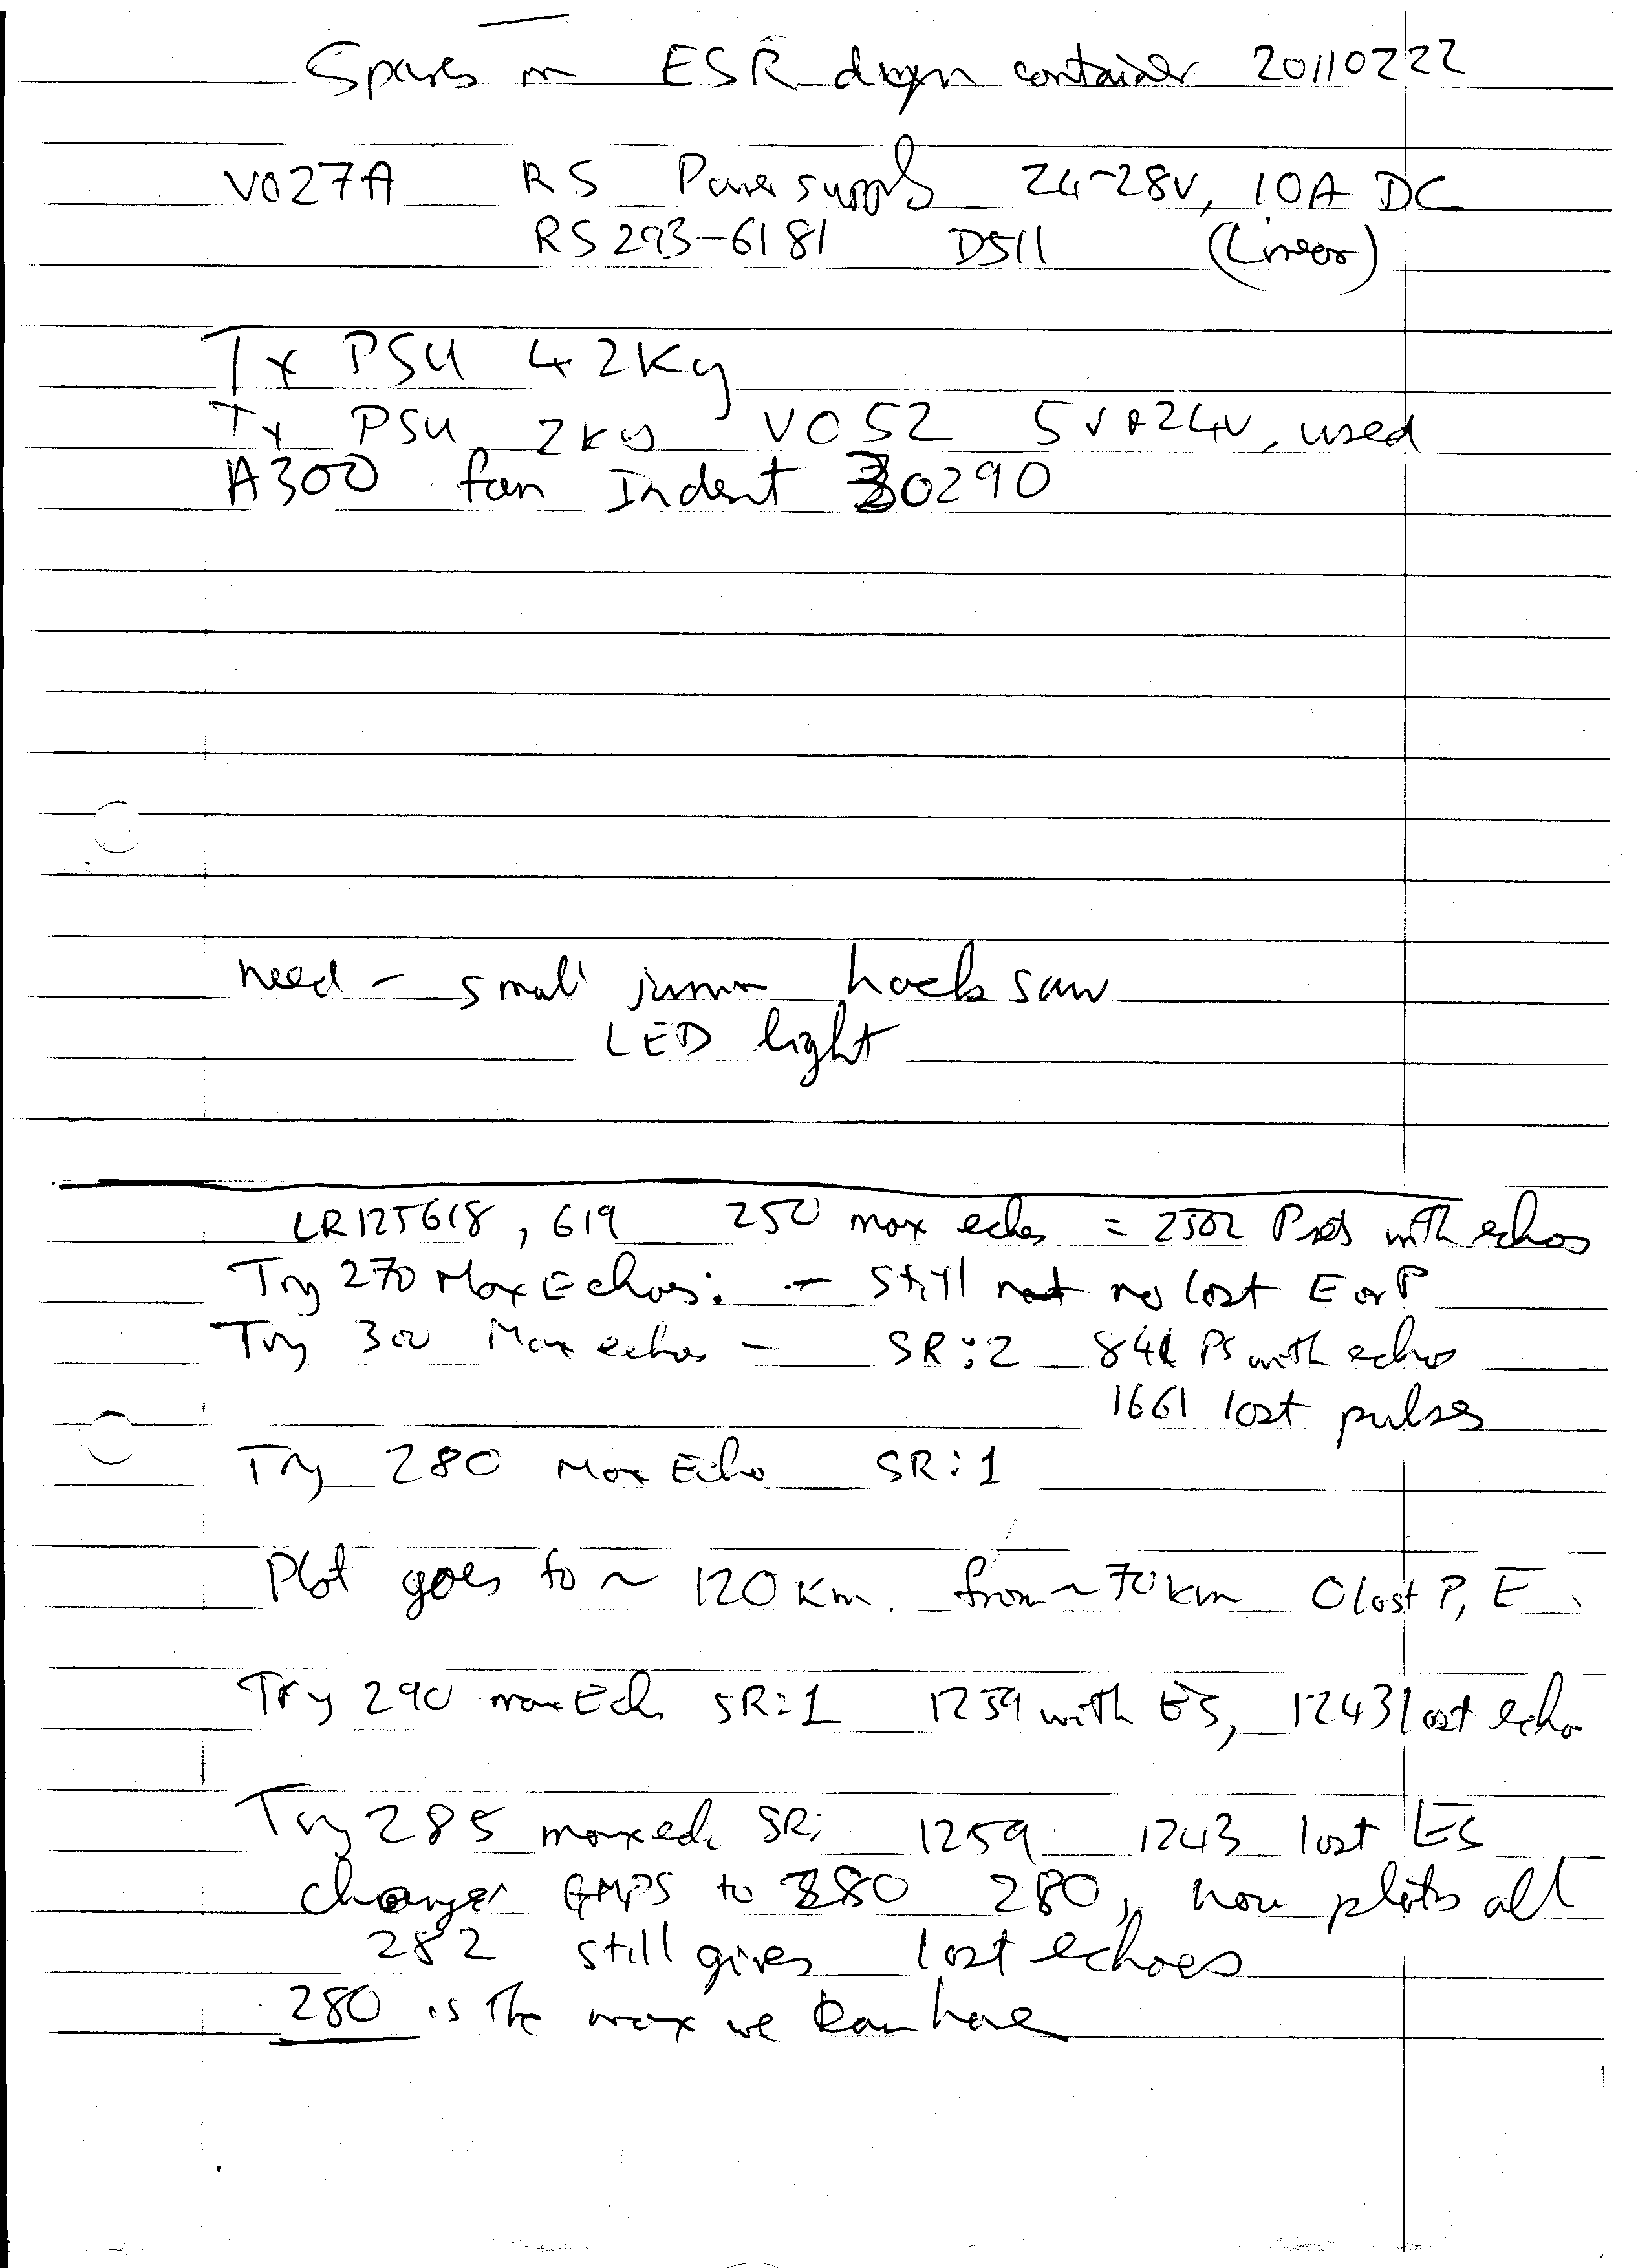 Spares in ESR container 20110222
V027A RS Power supply 24-28V, 10A DC
RS 293-6181 D511 (Linear)
Tx PSU 42Kg
Tx PSU 2Kg V052 5V+24V, used
A300 fan Indent 30290
need - small junior hacksaw
LED light
LR125618, 619 250 max echos = 2502 with echos
Try 270 Max Echos: - still no lost E or P
Try 300 Max echos - SR:2 841 PS with echo
1661 lost pulses
Try 280 Max Echo SR:1
Plot goes to ~ 120 Km. from ~ 70 km 0 lost P, E.
Try 290 max Echo SR:1 1259 with ES, 1243 lost echo
Try 285 maxech SR: 1259 1243 lost ES
change to 280, now plots all
282 still gives lost echoes
280 is the max we can have